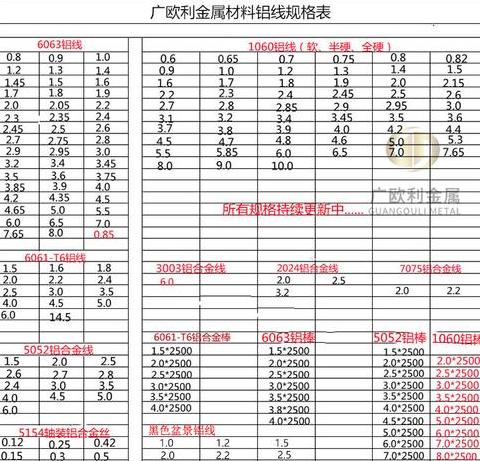 广欧利金属材料铝线规格表
6063铝线
0.8 0.9 1.0
1.2 1.3 1.4
1.45 1.5 1.6
1.7 1.8 1.9
2.0 2.05 2.2
2.3 2.35 2.4
2.45 2.5 2.6
2.7 2.75 2.8
2.9 2.95 3.0
3.2 3.4 3.45
3.5 3.6 3.75
3.85 3.9 4.0
4.2 4.35 4.5
4.65 5.0 5.5
6.0 6.5 7.0
7.65 8.0 0.85
6061-T6铝线
1.5 1.6 1.8
2.0 2.2 2.4
2.5 3.0 3.5
4.0 4.5 5.0
6.0 14.5
5052铝合金线
1.5 2.0 2.5
2.6 2.7 2.8
2.4 3.0 3.5
4.0 4.5 5.0
6.0
5154轴装铝合金丝
0.12 0.25 0.42
0.15 0.3 0.5
1060铝线（软、半硬、全硬）
0.6 0.65 0.7 0.75 0.8 0.82
0.9 1.0 1.2 1.3 1.4 1.5
1.6 1.7 1.8 1.9 2.0 2.15
2.2 2.3 2.4 2.45 2.5 2.6
2.7 2.8 2.85 2.9 2.95 3.0
3.1 3.2 3.4 3.45 3.5 3.6
3.7 3.8 3.9 4.0 4.2 4.4
4.5 4.7 4.8 4.6 5.0 5.3
5.5 5.85 6.0 6.5 7.0 7.65
8.0 9.0 10.0
广欧利金属
GUANGOULI METAL
所有规格持续更新中......
3003铝合金线 2024铝合金线 7075铝合金线
6.0 2.0 2.5 2.0 2.2
3.2
6061-T6铝合金棒 6063铝棒 5052铝棒 1060铝棒
1.5*2500 1.5*2500 1.5*2500 2.0*2500
2.0*2500 2.0*2500 2.0*2500 2.5*2500
2.5*2500 2.5*2500 2.5*2500 3.0*2500
3.0*2500 3.0*2500 3.0*2500 3.5*2500
3.5*2500 3.5*2500 4.0*2500 4.0*2500
4.0*2500 3.8*2500 5.0*2500 5.0*2500
4.0*2500 6.0*2500 6.0*2500
7.0*2500 7.0*2500
8.0*2500
黑色盆景铝线
1.0 1.2 1.5
2.0 2.2 2.5